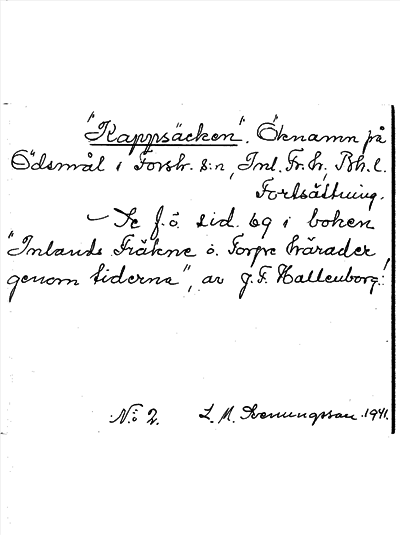 "Kappsäcken". Öknamn på
Ödsmål i Forsh. s:n, Inl. Fr. h., Bh. l.
Fortsättning.
— Se f.ö. sid. 69 i boken
"Inlands Fräkne o. Torpe härader
genom tiderna", av J. F. Hallenborg!
N:o 2. L. M. Svenungsson 1941.